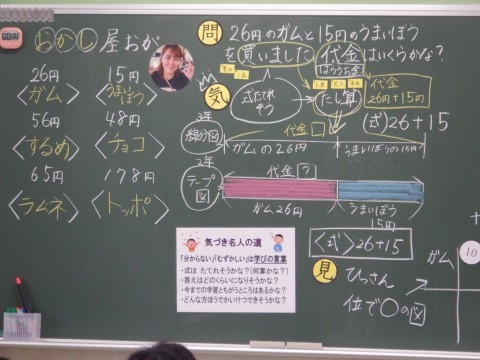 おかし屋おが
26円
〈ガム〉
15円
〈うまいぼう〉
56円
〈するめ〉
48円
〈チョコ〉
65円
〈ラムネ〉
178円
〈トッポ〉
問
26円のガムと15円のうまいぼう
を買いました。代金はいくらかな？
はらうお金
気
式たてれそう
たし算
代金
26円+15円
(式)26+15
3年
線分図
代金□
ガムの26円
うまいぼうの15円
2年
テープ図
代金?
ガム26円
うまいぼう
15円
〈式〉26+15
気づき名人の道
「分からない」「むずかしい」は学びの言葉
・式は たてれそうかな？(何算かな？)
・答えはどのくらいになりそうかな？
・今までの学習とちがうところはあるかな？
・どんな方ほうでかいけつできそうかな？
見
ひっさん
位で○の図
ガム
10